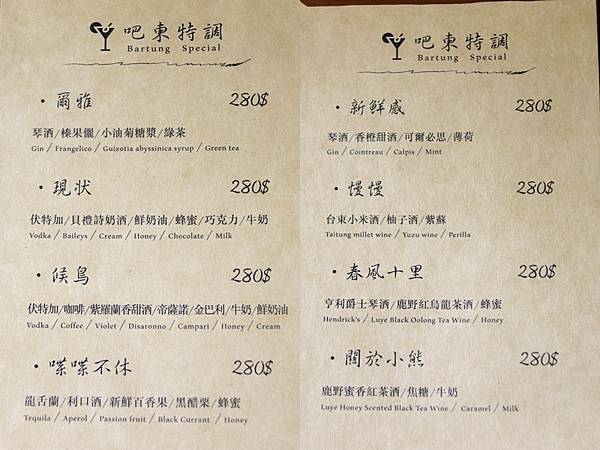 吧東特調
Bartung Special
・爾雅 280$
琴酒/榛果儷/小油菊糖漿/綠茶
Gin / Frangelico / Guizotia abyssinica syrup / Green tea
・現狀 280$
伏特加/貝禮詩奶酒/鮮奶油/蜂蜜/巧克力/牛奶
Vodka / Baileys / Cream / Honey / Chocolate / Milk
・候鳥 280$
伏特加/咖啡/紫羅蘭香甜酒/帝薩諾/金巴利/牛奶/鮮奶油
Vodka / Coffee / Violet / Disaronno / Campari / Honey / Cream
・喋喋不休 280$
龍舌蘭/利口酒/新鮮百香果/黑醋栗/蜂蜜
Tequila / Aperol / Passion fruit / Black Currant / Honey
吧東特調
Bartung Special
・新鮮感 280$
琴酒/香橙甜酒/可爾必思/薄荷
Gin / Cointreau / Calpis / Mint
・慢慢 280$
台東小米酒/柚子酒/紫蘇
Taitung millet wine / Yuzu wine / Perilla
・春風十里 280$
亨利爵士琴酒/鹿野紅烏龍茶酒/蜂蜜
Hendrick's / Luye Black Oolong Tea Wine / Honey
・關於小熊 280$
鹿野蜜香紅茶酒/焦糖/牛奶
Luye Honey Scented Black Tea Wine / Caramel / Milk